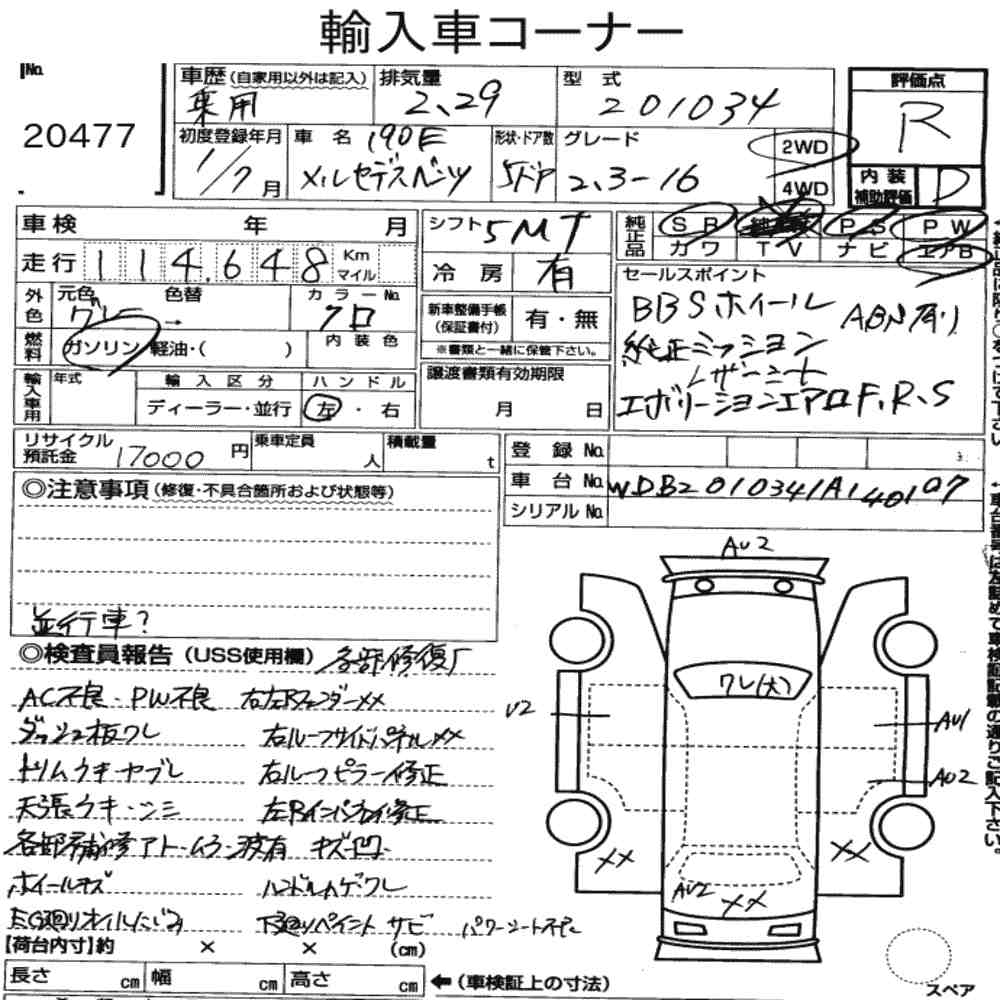 輸入車コーナー
No.
20477
車歴(自家用以外は記入)
乗用
排気量
2.29
型 式
201034
評価点
R
初度登録年月
1/7月
車 名
190E
メルセデスベンツ
形状・ドア数
5ドア
グレード
2.3-16
2WD
4WD
内装
補助評価
D
車検 年 月
走行 114.648 Km
マイル
シフト 5MT
冷房 有
純正品
SR PS PW
カワ TV ナビ エアB
外色
元色 色替
グレー →
カラーNo.
クロ
燃料
ガソリン 軽油・( )
内装色
新車整備手帳
(保証書付)
有・無
※書類と一緒に保管下さい。
セールスポイント
BBSホイール ABS有り
純正ミッション
レザーシート
エボリーションエアロF,R,S
輸入車用
年式
輸入区分
ディーラー・並行
ハンドル
左・右
譲渡書類有効期限
月 日
リサイクル
預託金 17000 円
乗車定員
人
積載量
t
登録No.
車台No. WDB2010341A140107
シリアルNo.
◎注意事項(修復・不具合箇所および状態等)
並行車?
◎検査員報告(USS使用欄) 各部修復歴
AC不良・PW不良 右左Rフェンダーxx
ダッシュ板ワレ 右ルーフサイドパネルxx
トリムウキヤブレ 右ルーフピラー修正
天張ウキ・シミ 左Rインパネ修正
各部補修アト・ムラ・波有 キズ凹
ホイールキズ ハンドルハゲ・ワレ
EG廻りオイルにじみ 下廻りペイント サビ パワーシート
AU2
ワレ(大)
U2
AU1
AU2
XX
XX
AU2
XX
スペア
【荷台内寸】約 × × (cm)
長さ cm 幅 cm 高さ cm
←(車検証上の寸法)